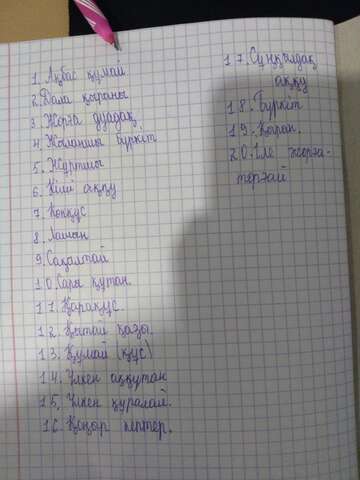 1. Ақбас құмай
2. Дала қыраны
3. Жорға дуадақ
4. Жыланшы бүркіт
5. Жұртшы
6. Кіші аққу
7. Көкқұс
8. Лашын
9. Сақалтай
10. Сары құтан.
11. Қарақұс.
12. Қытай қазы.
13. Құмай (құс)
14. Үлкен аққутан
15. Үлкен құралай.
16. Қоңыр кептер.
17. Сұңқылдақ
аққу
18. Бүркіт
19. Қыран.
20. Іле жорға-
торғай